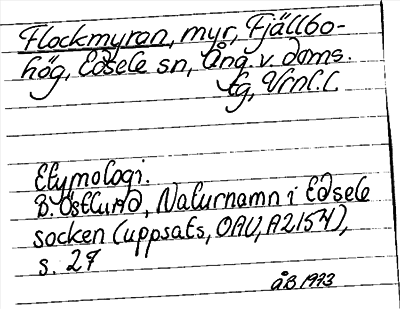 Flockmyran, myr, Fjällbo-
hög, Edsele sn, Ång. v. doms.
tg, Vrnl.l.
Etymologi.
B. Östlund, Naturnamn i Edsele
socken (uppsats, OAU, A2154),
s. 27
ÅB 1973